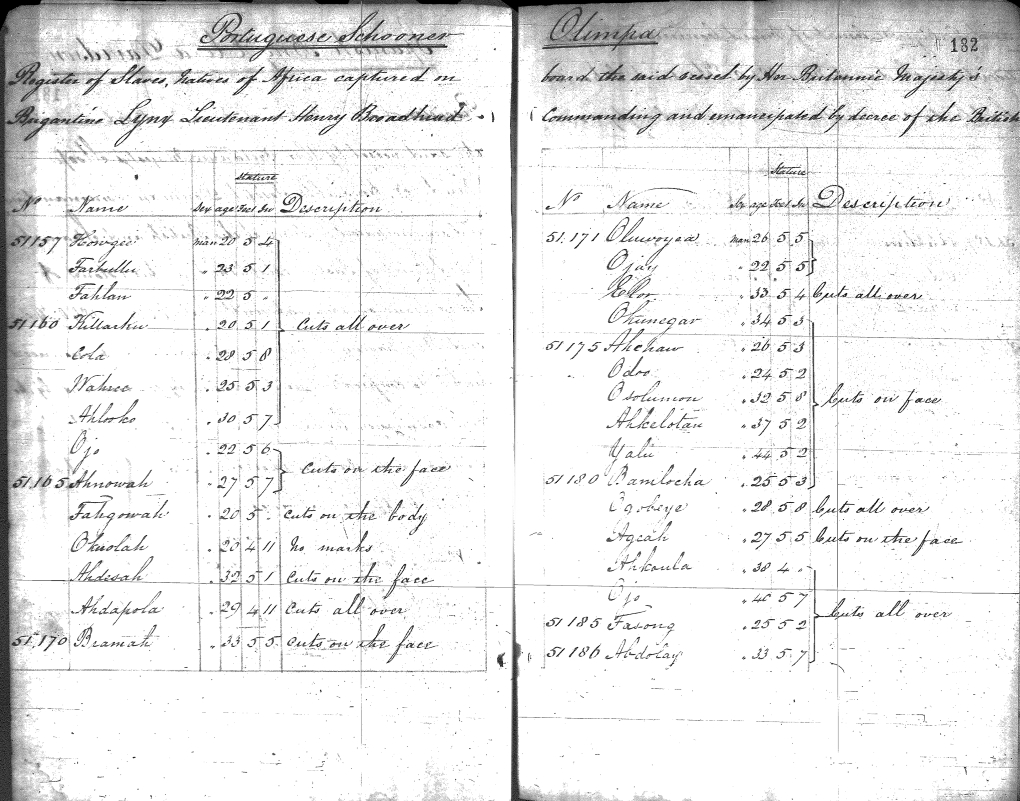 Portuguese Schooner
Register of Slaves, Natives of Africa captured on
Brigantine Lynx Lieutenant Henry Broadhead
Stature
No Name Sex age Feet In Description
51157 Howgee man 20 5 4
Farbullu " 23 5 1
Fahlan " 22 5 "
51160 Killarku " 20 5 1 Cuts all over
Cola " 28 5 8
Wahree " 25 5 3
Ahlooko " 30 5 7
Ojo " 22 5 6
cuts on the face
51,165 Ahnowah " 27 5 7
Fahgowah " 20 5 " cuts on the body
Okuolah " 20 4 11 No marks
Ahdesah " 32 5 1 cuts on the face
Ahdapola " 29 4 11 cuts all over
51,170 Beamah " 33 5 5 cuts on the face
Olimpa
132
board the said vessel by Her Britannic Majesty's
Commanding and emancipated by decree of the British
Stature
No Name Sex age Feet In Description
51.171 Oluwoyea man 26 5 5
Ojay " 22 5 5
" 33 5 4 Cuts all over
Okunegar " 34 5 3
51175 Ahchaw " 26 5 3
Odoo " 24 5 2
Osolumon " 32 5 8 Cuts on face
Ahkelotan " 37 5 2
Yalu " 44 5 2
51180 Bamlocha " 25 5 3
Ogobeye " 28 5 8 Cuts all over
Ageah " 27 5 5 Cuts on the face
Ahkoula " 38 4 "
Ojo " 40 5 7
Cuts all over
51185 Fasong " 25 5 2
51186 Abdolay " 33 5 7